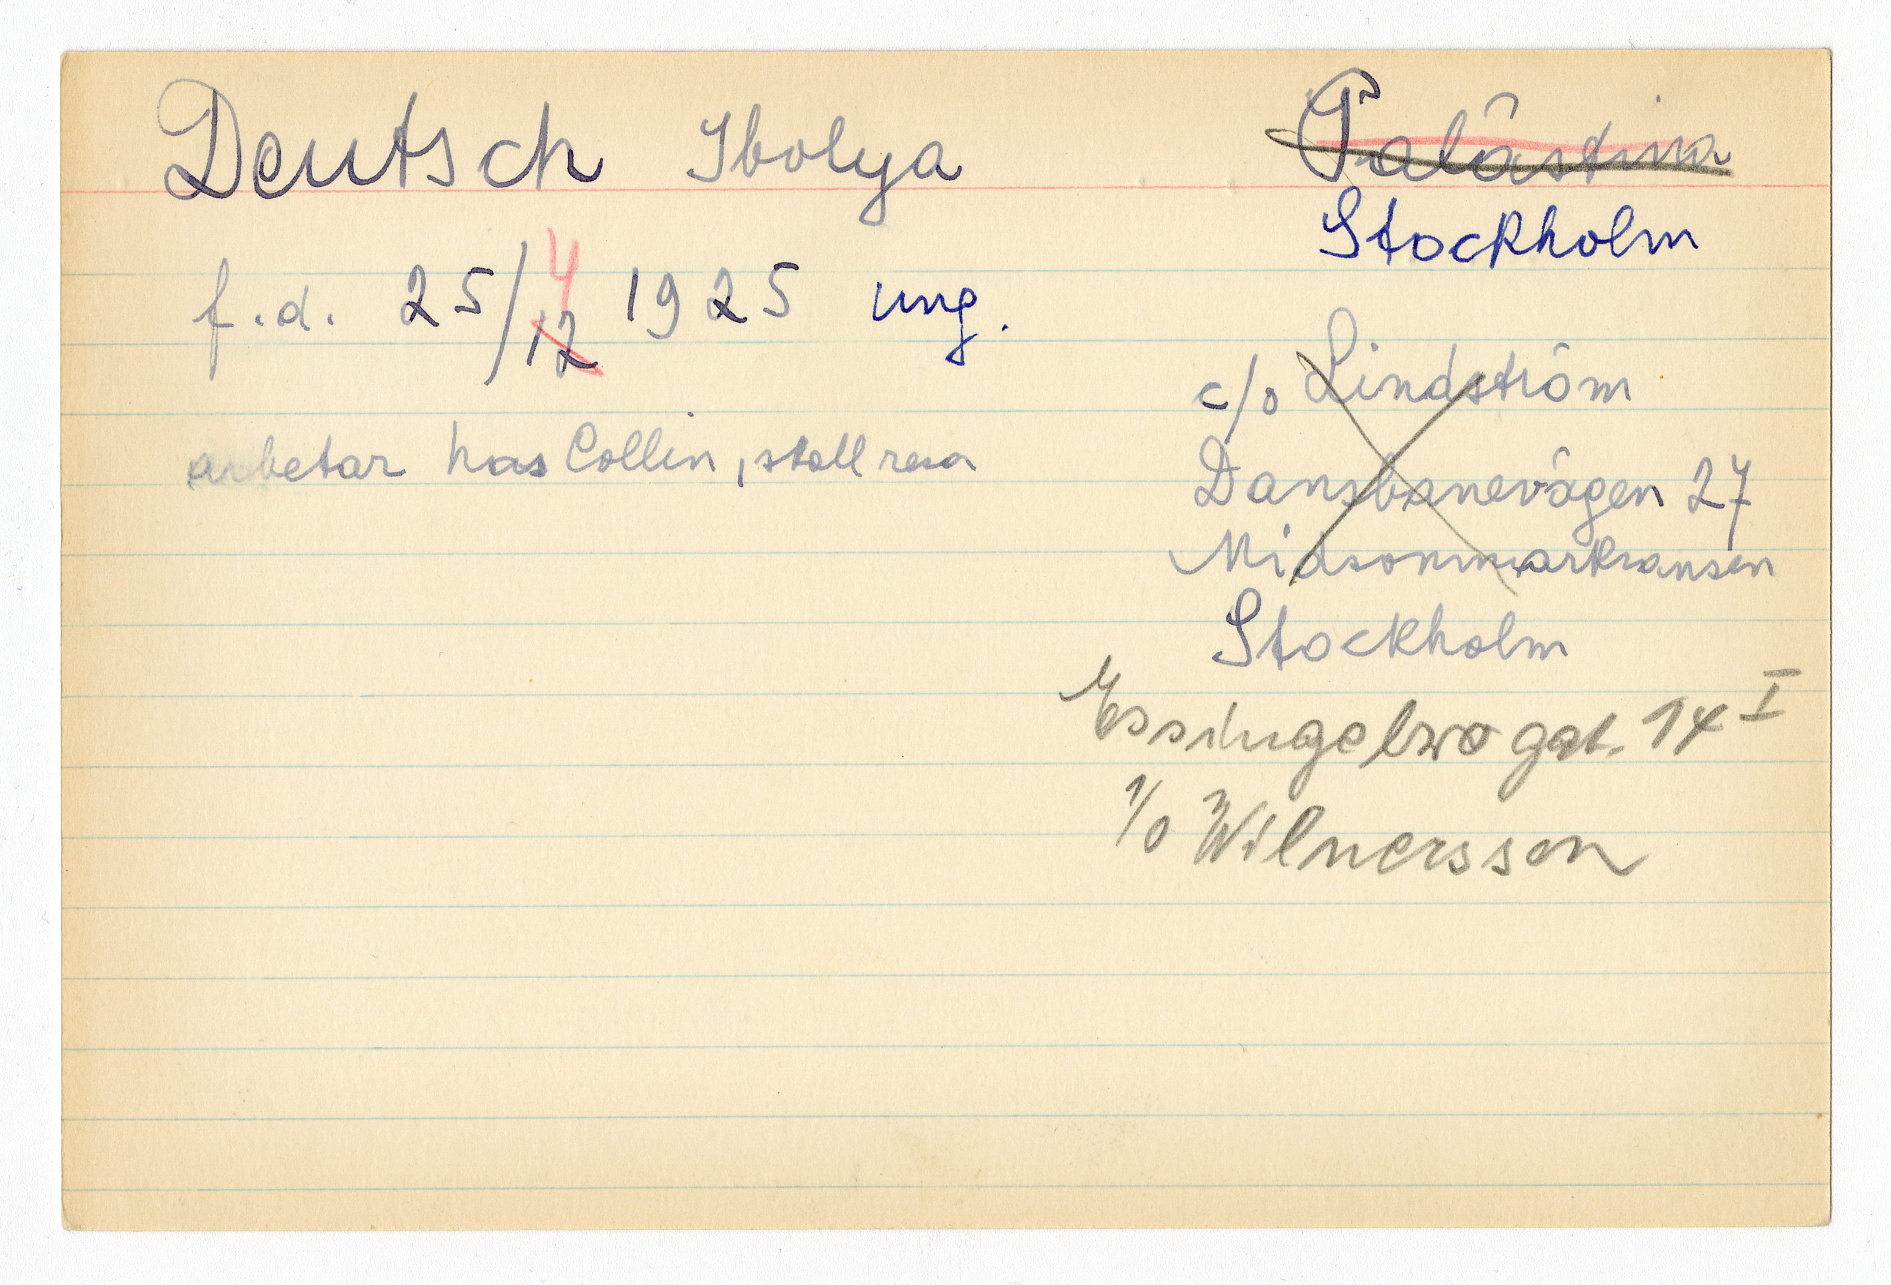 Deutsch Ibolya
Palästina
Stockholm
f.d. 25/12 4 1925 ung.
c/o Lindström
arbetar hos Collin, stall resa
Dansbanevägen 27
Midsommarkransen
Stockholm
Essingebrogat. 14 I
c/o Wilnersson